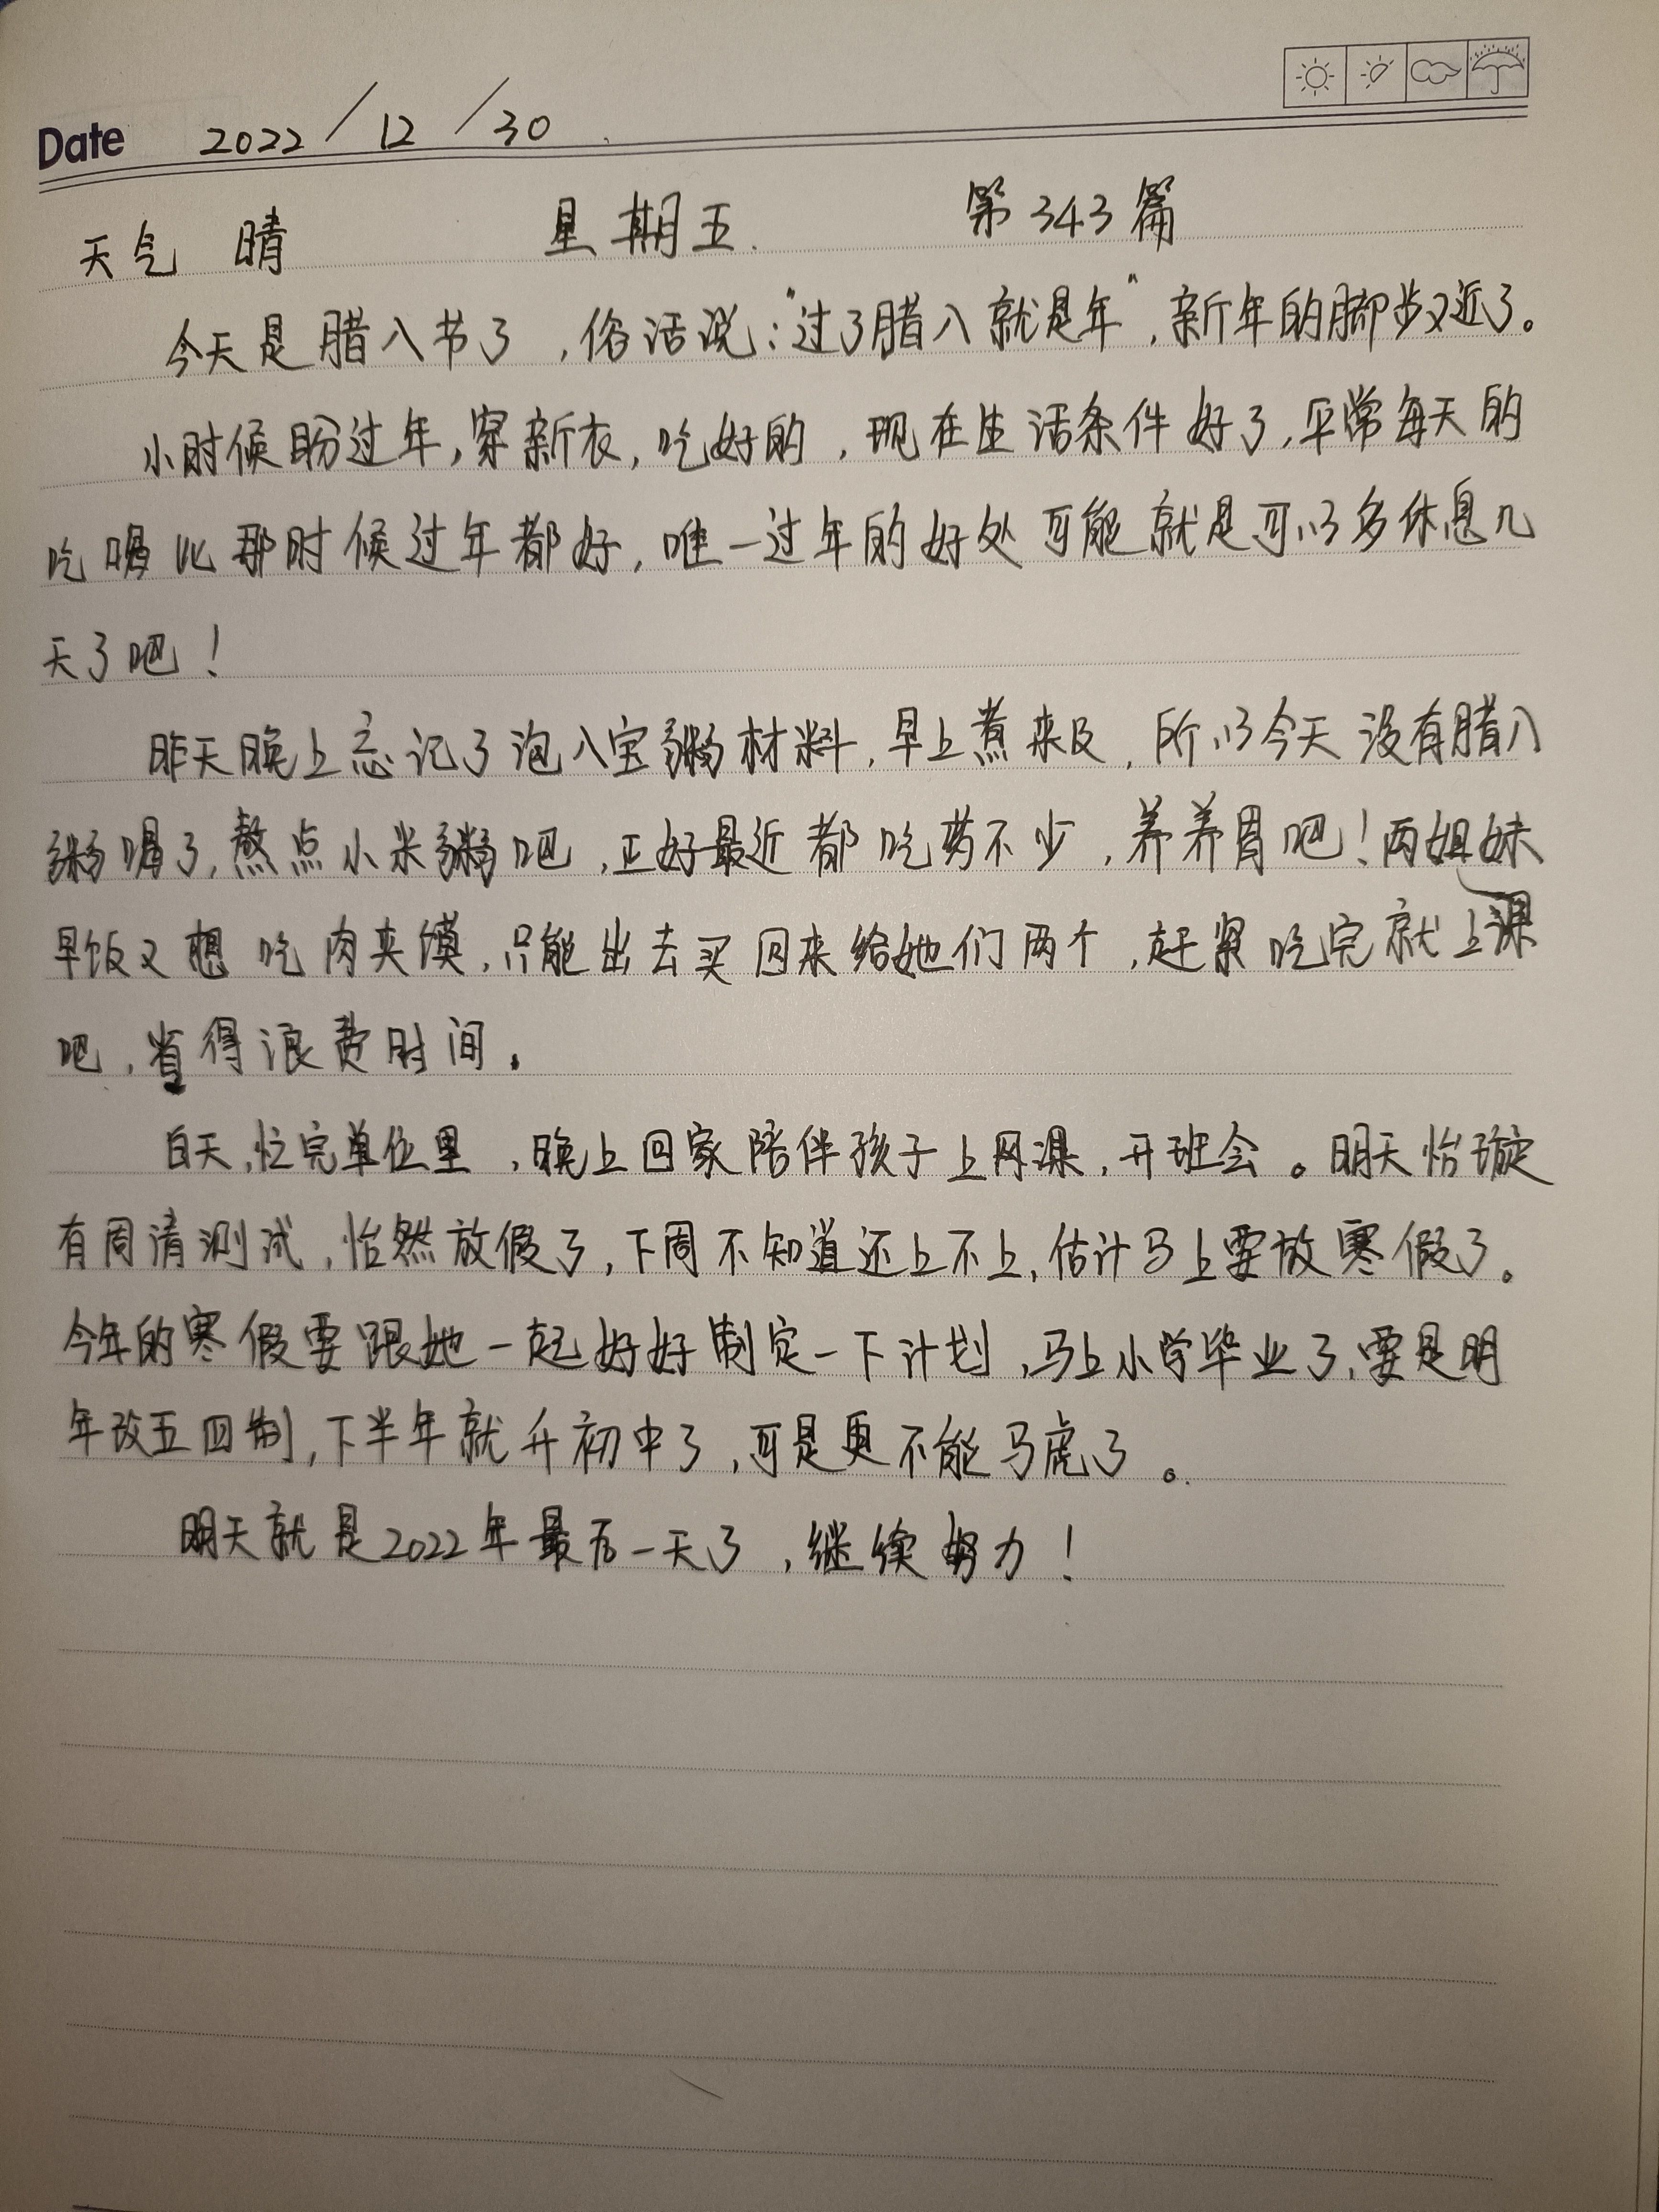 Date 2022/12/30
天气 晴 星期五. 第343篇
今天是腊八节了,俗话说:"过了腊八就是年",新年的脚步又近了。
小时候盼过年,穿新衣,吃好的,现在生活条件好了,平常每天的
吃喝比那时候过年都好,唯一过年的好处可能就是可以多休息几
天了吧!
昨天晚上忘记了泡八宝粥材料,早上煮来及,所以今天没有腊八
粥喝了,熬点小米粥吧,正好最近都吃药不少,养养胃吧!两姐妹
早饭又想吃肉夹馍,只能出去买回来给她们两个,赶紧吃完就上课
吧,省得浪费时间。
白天,忙完单位里,晚上回家陪伴孩子上网课,开班会。明天怡璇
有周清测试,怡然放假了,下周不知道还上不上,估计马上要放寒假了。
今年的寒假要跟她一起好好制定一下计划,马上小学毕业了,要是明
年改五四制,下半年就升初中了,可是更不能马虎了。
明天就是2022年最后一天了,继续努力!